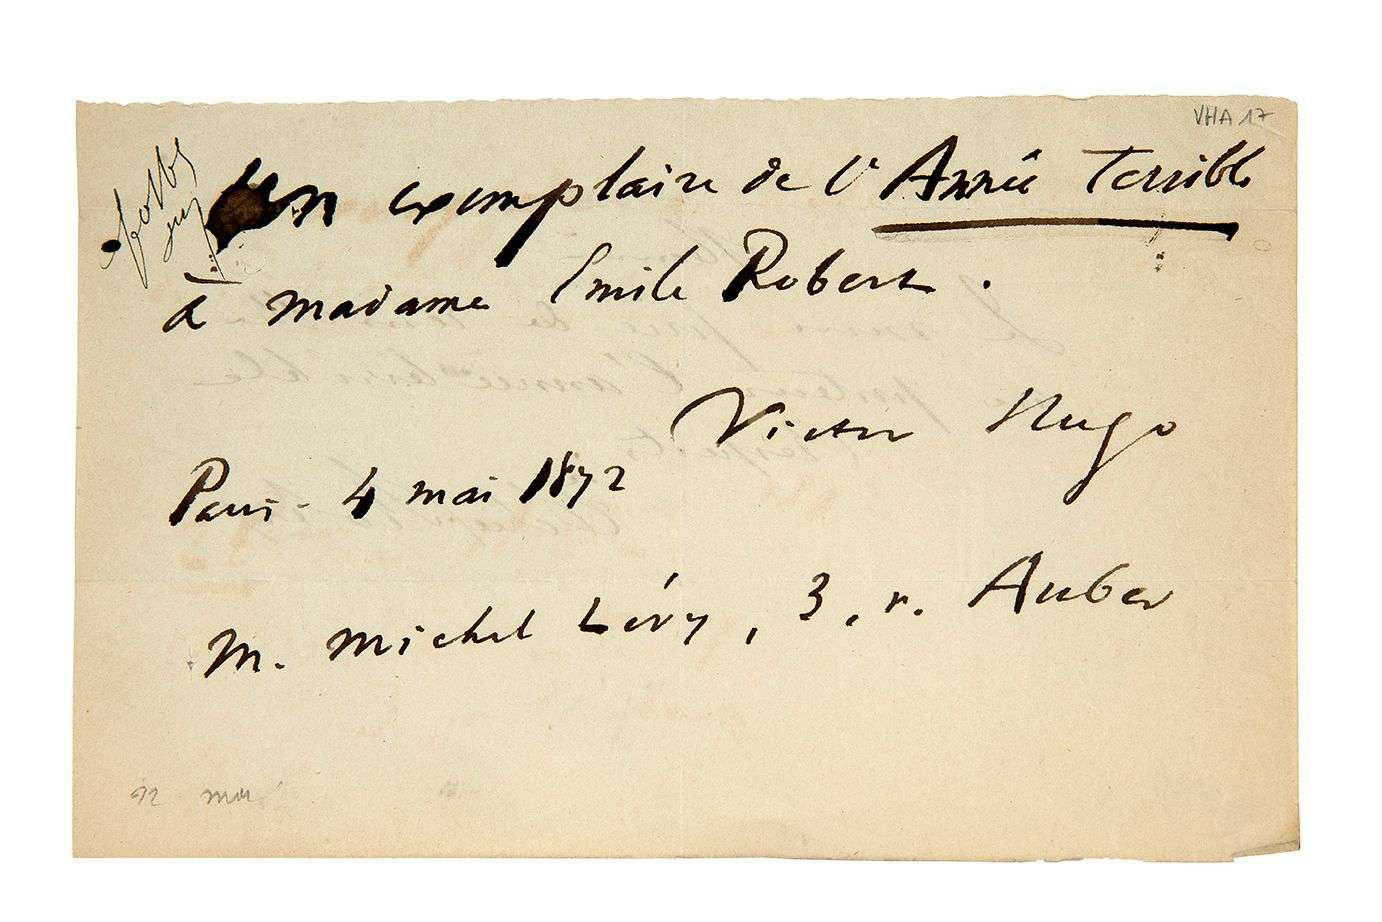 VHA 17
un exemplaire de l'Année Terrible
à madame Emile Robert.
Victor Hugo
Paris - 4 mai 1872
M. Michel Lévy, 3, r. Auber